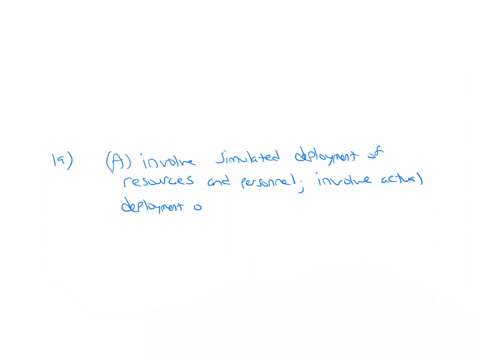 1a) (A) involve simulated deployment of
resources and personnel; involve actual
deployment o